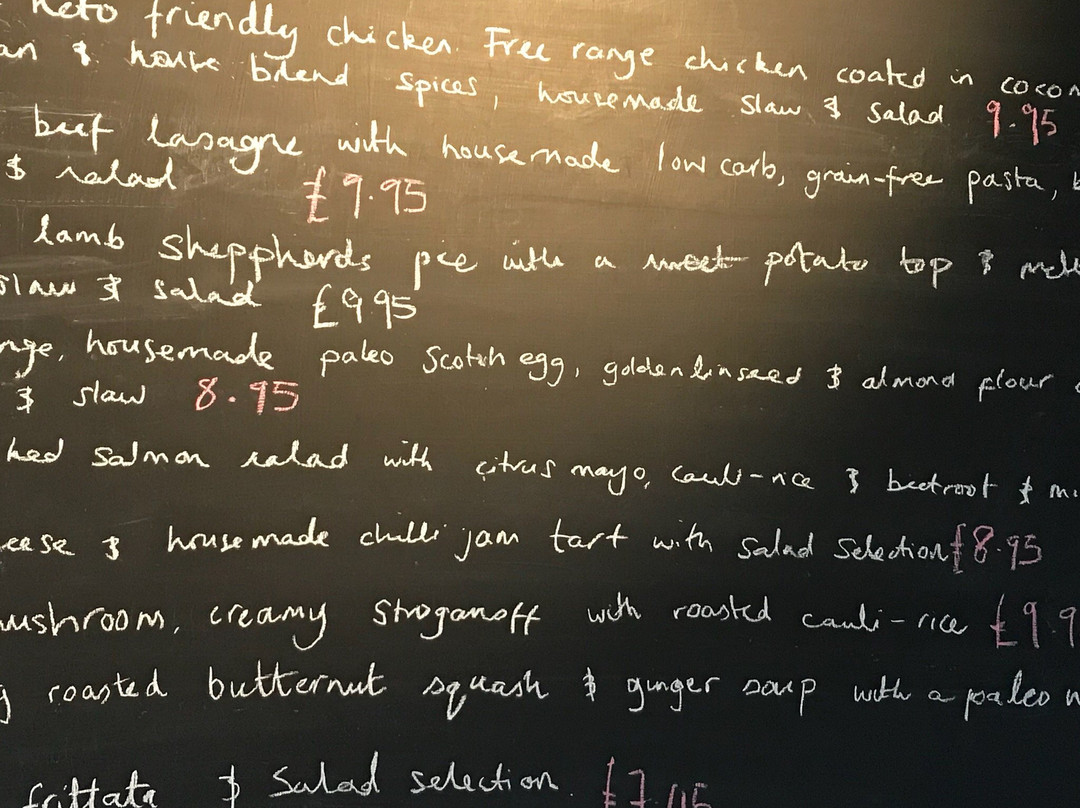 Keto friendly chicken. Free range chicken coated in cocon
an & house blend spices, housemade slaw & salad 9.95
beef lasagne with housemade low carb, grain-free pasta, b
& salad £9.95
lamb Sheppherds pie with a sweet potato top & melt
slaw & salad £9.95
nge, housemade paleo scotch egg, golden linseed & almond flour
& slaw 8.95
hed salmon salad with citrus mayo, cauli-rice & beetroot & mi
eese & housemade chilli jam tart with salad selection £8.95
mushroom, creamy Stroganoff with roasted cauli-rice £9.9
g roasted butternut squash & ginger soup with a paleo
frittata & Salad selection.